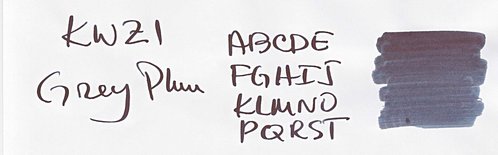 KWZI
Grey Plum
ABCDE
FGHIJ
KLMNO
PQRST